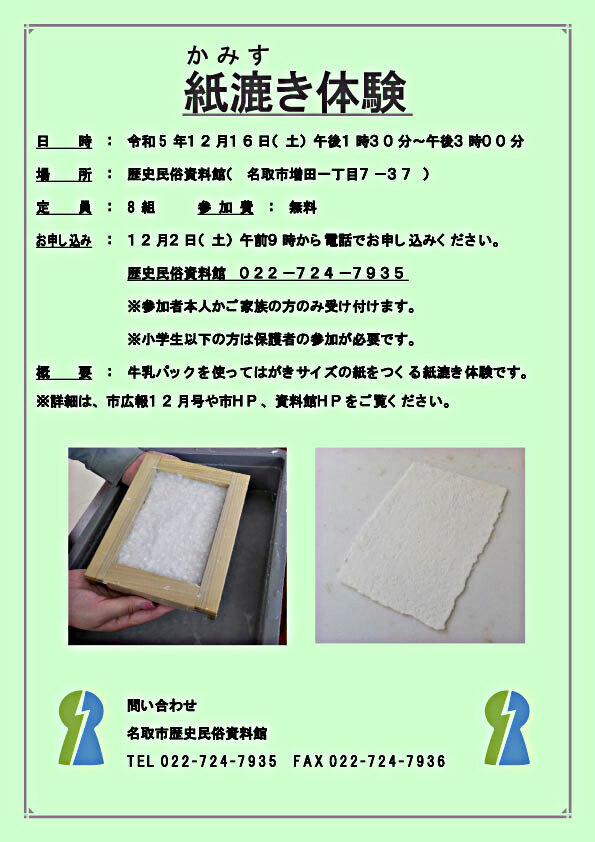 かみす
紙漉き体験
日　　時　：　令和5年12月16日(土)午後1時30分～午後3時00分
場　　所　：　歴史民俗資料館(　名取市増田一丁目7－37　)
定　　員　：　8組　　　参加費　：　無料
お申し込み　：　12月2日(土)午前9時から電話でお申し込みください。
歴史民俗資料館　022－724－7935
※参加者本人かご家族の方のみ受け付けます。
※小学生以下の方は保護者の参加が必要です。
概　　要　：　牛乳パックを使ってはがきサイズの紙をつくる紙漉き体験です。
※詳細は、市広報12月号や市HP、資料館HPをご覧ください。
問い合わせ
名取市歴史民俗資料館
TEL 022-724-7935　FAX 022-724-7936